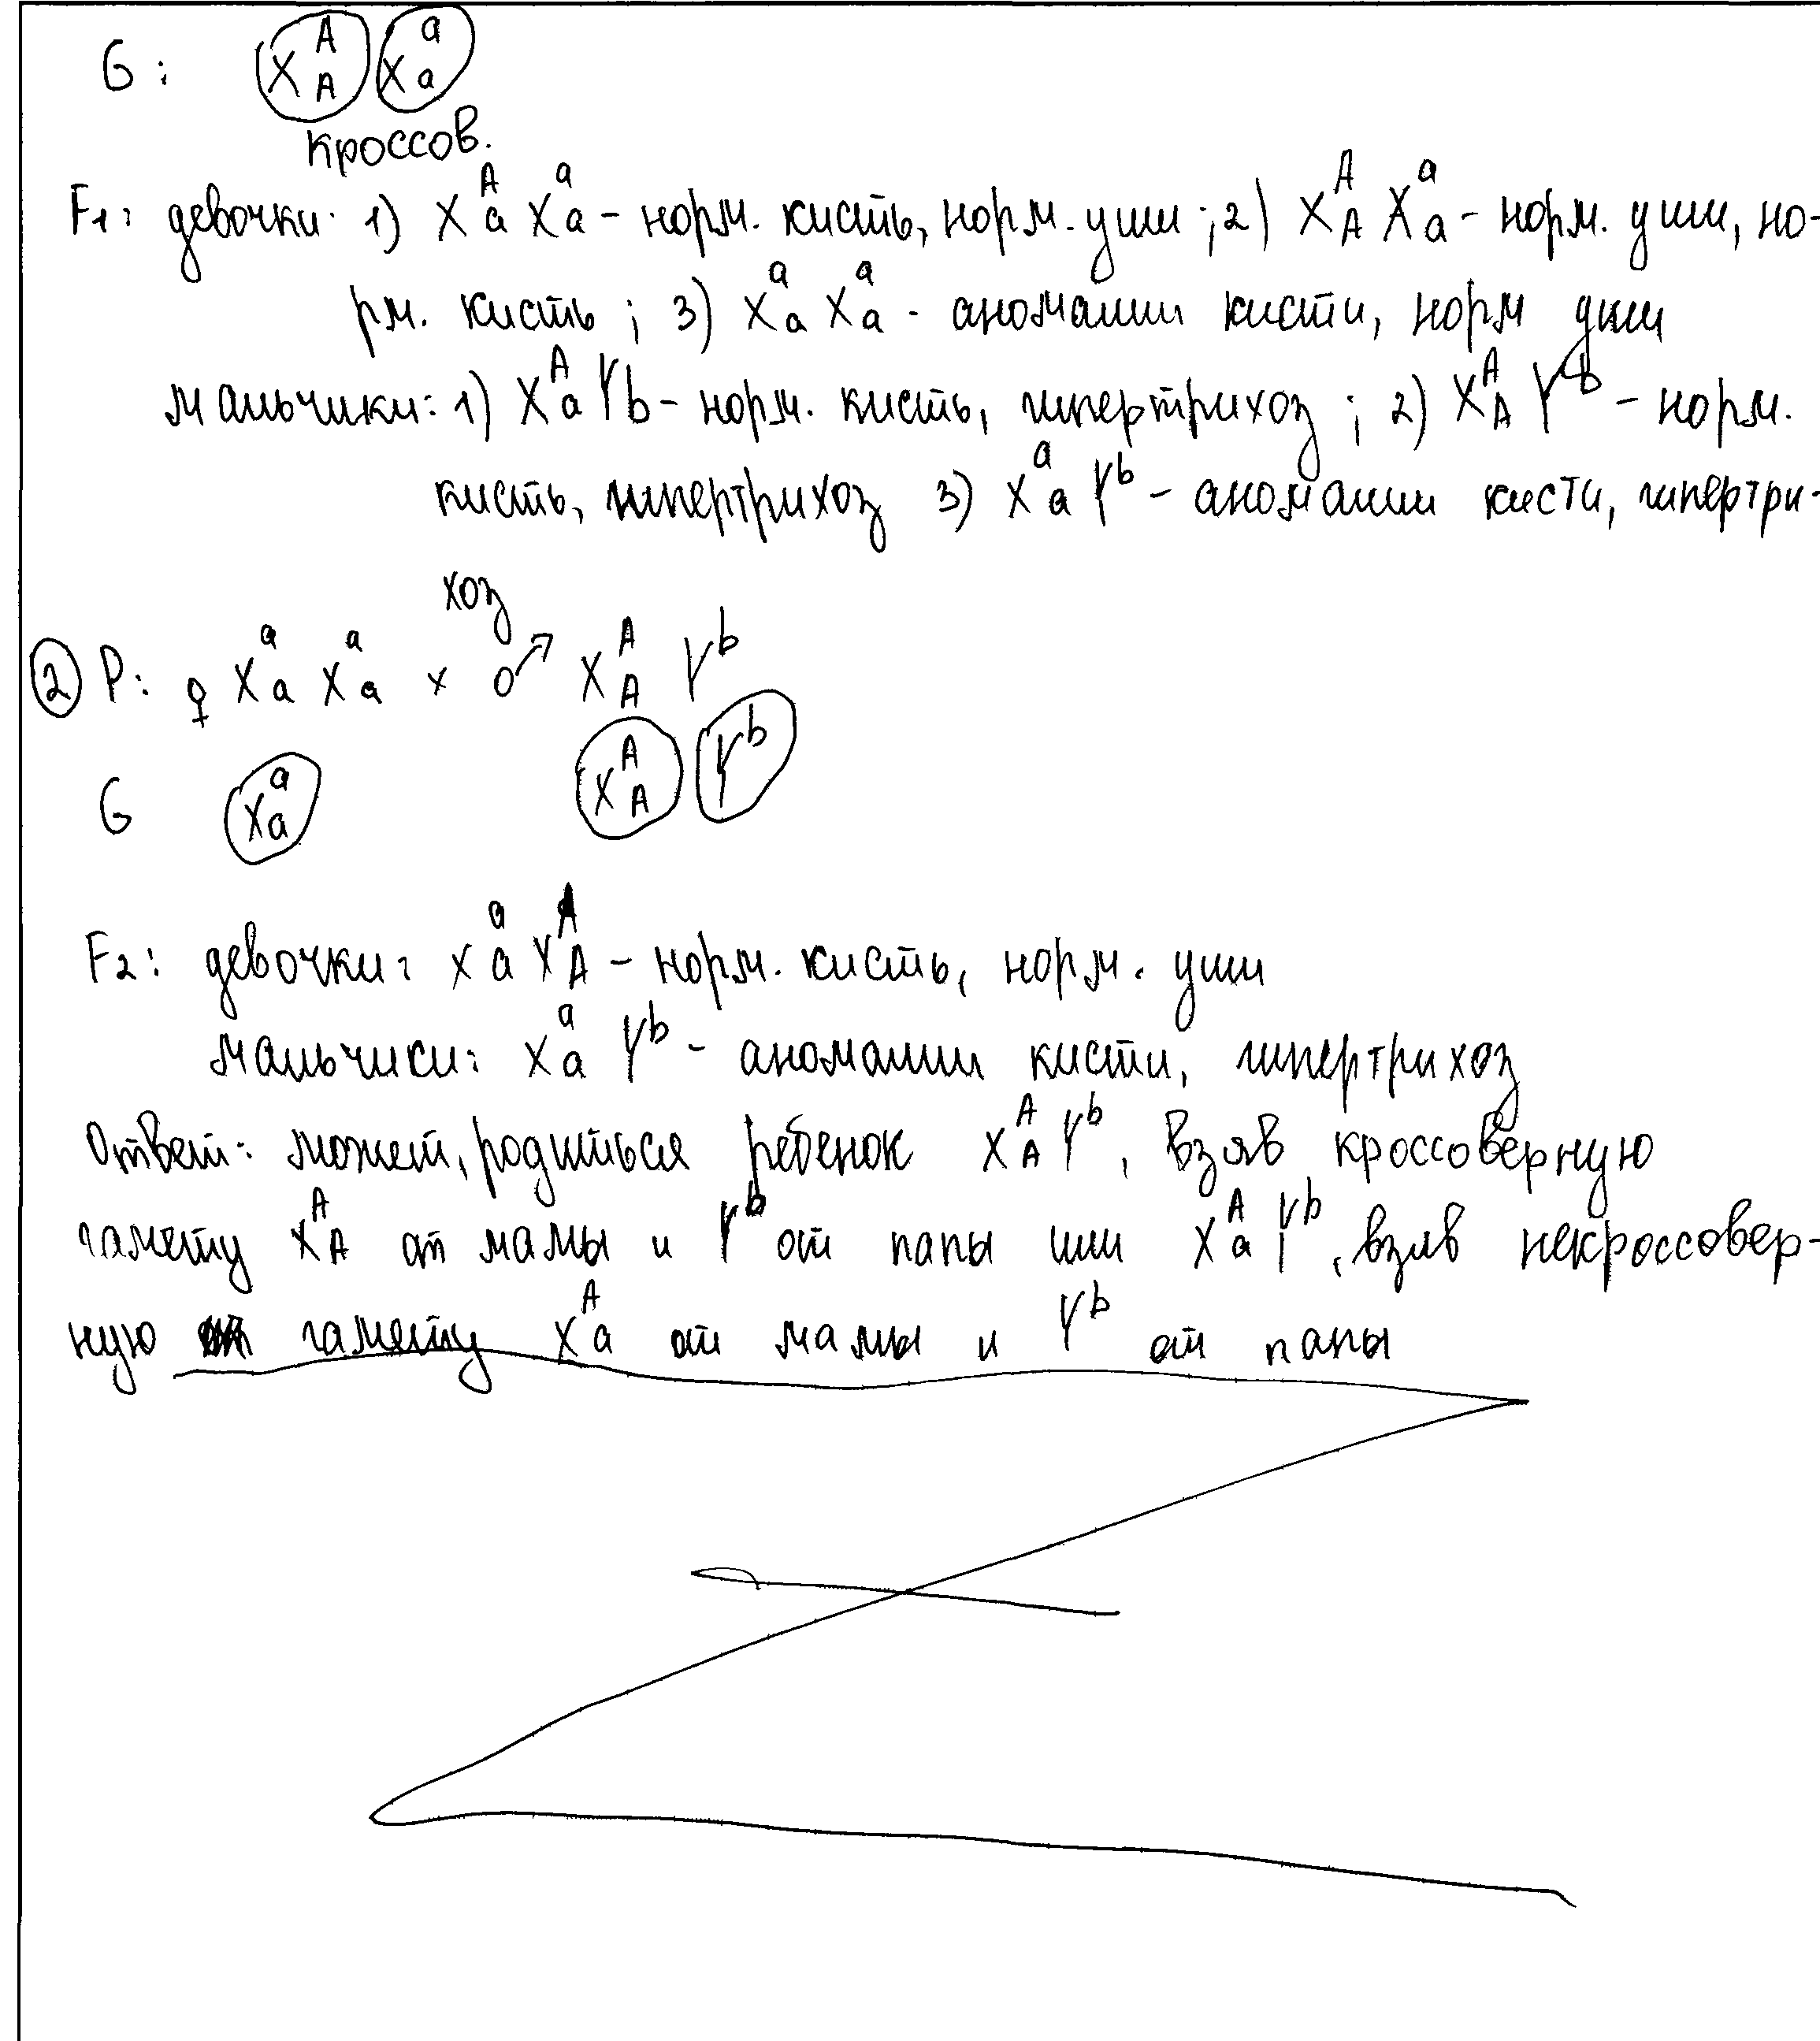 G: X^A_A X^a_a
кроссов.
F1: девочки: 1) X^A_a X^a_a - норм. кисть, норм. уши; 2) X^A_A X^a_a - норм. уши, но-
рм. кисть; 3) X^a_a X^a_a - аномалии кисти, норм уши
мальчики: 1) X^A_a Yb - норм. кисть, гипертрихоз; 2) X^A_A Y^b - норм.
кисть, гипертрихоз 3) X^a_a Y^b - аномалии кисти, гипертри-
хоз
② P: ♀ X^a_a X^a_a × ♂ X^A_A Y^b
G X^a_a X^A_A Y^b
F2: девочки: X^a_a X^A_A - норм. кисть, норм. уши
мальчики: X^a_a Y^b - аномалии кисти, гипертрихоз
Ответ: может, родиться ребенок X^A_A Y^b, взяв кроссоверную
гамету X^A_A от мамы и Y^b от папы или X^A_a Y^b, взяв некроссовер-
ную гамету X^A_a от мамы и Y^b от папы